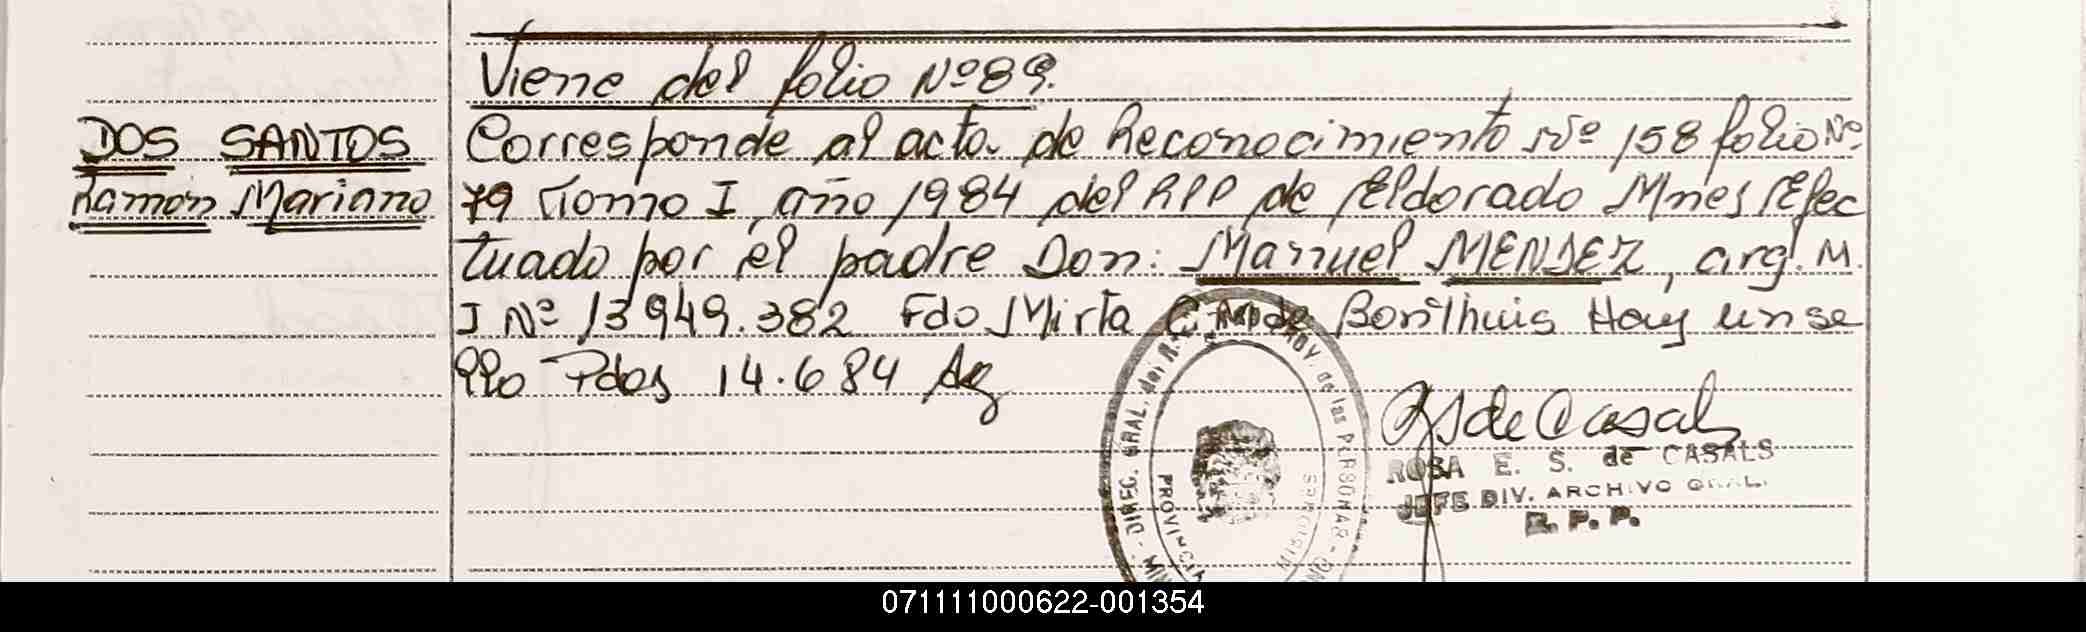 Viene del folio Nº 89.
DOS SANTOS
Ramón Mariano
Corresponde al acta de Reconocimiento Nº 158 folio Nº
79 Tomo I, año 1984 del RPP de Eldorado Mnes/Efec
tuado por el padre Don: Manuel MENDEZ, arg. M.
I Nº 13949.382 Fdo Mirta de Bonthuis Hay un se
llo Pdas 14.6 84
RS de Casals
ROSA E. S. de CASALS
JEFE DIV. ARCHIVO GRAL.
R. P. P.
DIREC. GRAL. del de las PERSONAS
PROVINCIA MISIONES
071111000622-001354